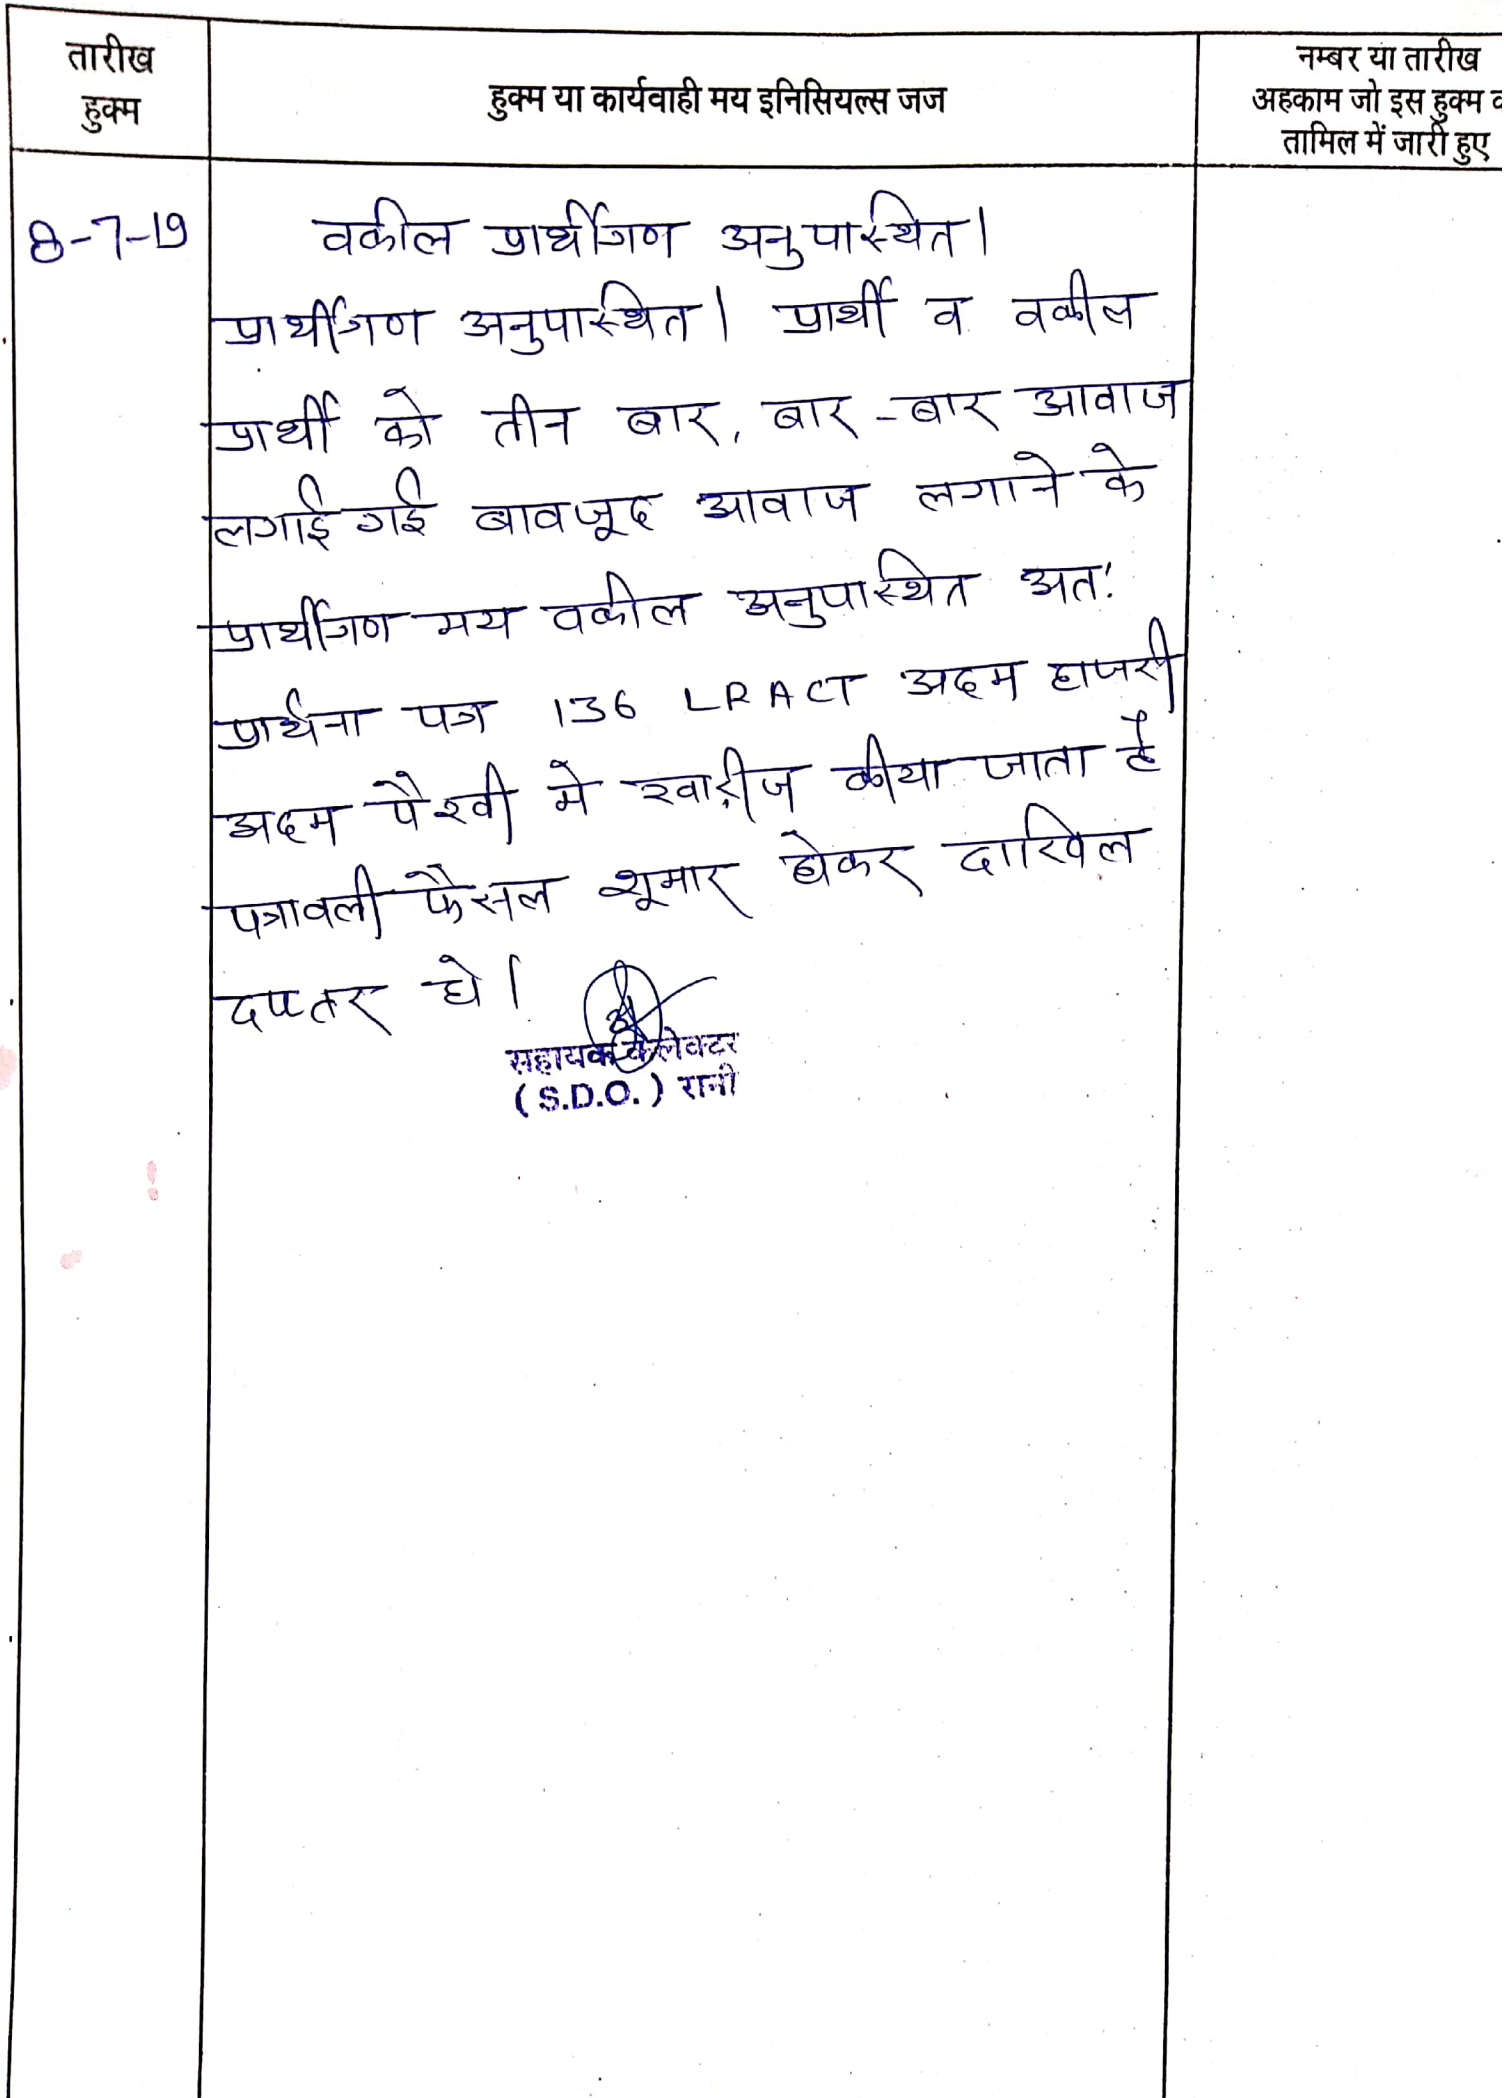 तारीख
हुक्म
हुक्म या कार्यवाही मय इनिसियल्स जज
नम्बर या तारीख
अहकाम जो इस हुक्म
तामिल में जारी हुए
8-7-19
वकील प्रार्थीगण अनुपास्थित।
प्रार्थीगण अनुपास्थित। प्रार्थी व वकील
प्रार्थी को तीन बार, बार-बार आवाज
लगाई गई बावजूद आवाज लगाने के
प्रार्थीगण मय वकील अनुपास्थित अतः
प्रार्थना पत्र 136 LR ACT अदम हाजरी
अदम पैरवी मे खारीज कीया जाता है
पत्रावली फैसल शूमार होकर दाखिल
दफ्तर हो।
सहायक कलेक्टर
(S.D.O.) रानी